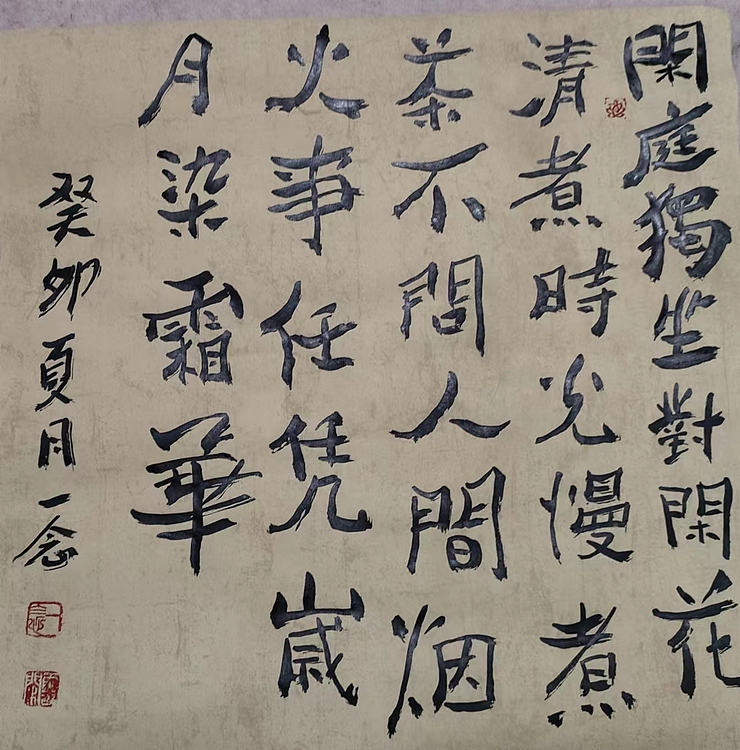 閑庭獨坐對閑花
清煮時光慢煮
茶不問人間烟
火事任凭歲
月染霜華
癸卯夏月一念